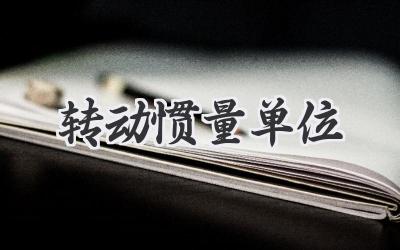 转动惯量单位